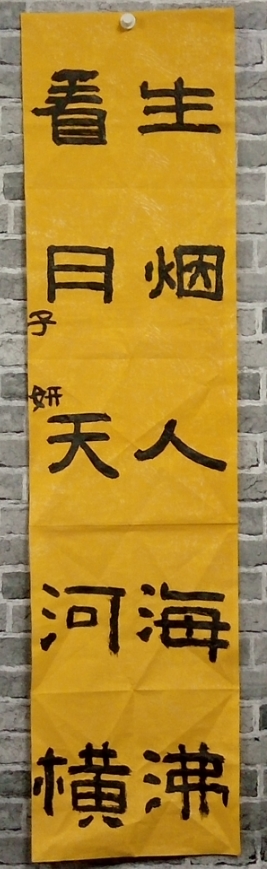 生烟人海沸
看日天河横
子妍